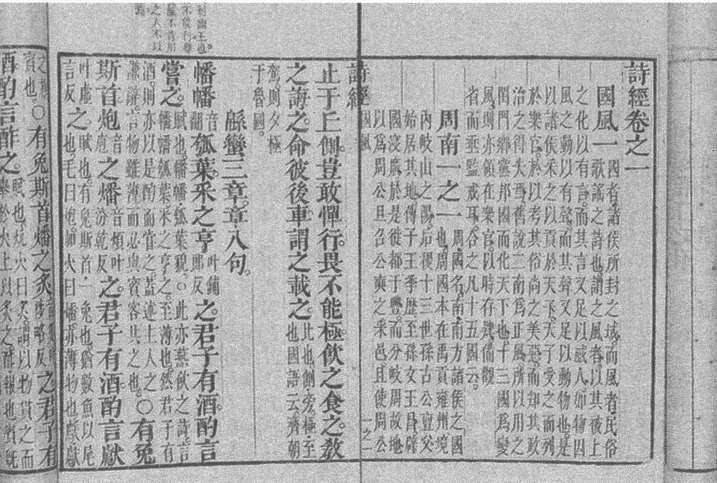 詩經卷之一
國風一 國者諸侯所封之域而風者民俗
歌謠之詩也謂之風者以其被上
之化以有言而其言又足以感人如物因
風之動以有聲而其聲又足以動物也是
以諸侯采之以貢於天子天子受之而列
於樂官於以考其俗尚之美惡而知其政
治之得失焉舊說二南為正風所以用之
閨門鄉黨邦國而化天下也十三國為變
風則亦領在樂官以時存肄備觀
省而垂監戒耳合之凡十五國云
周南一之一 周國名南南方諸侯之國
也周國本在禹貢雍州境
內岐山之陽后稷十三世孫古公亶父
始居其地傳子王季歷至孫文王昌辟
國寖廣於是徙都于豐而分岐周故地
以為周公旦召公奭之采邑且使周公
詩經 國風 一之一
止于丘側豈敢憚行畏不能極飲之食之教
之誨之命彼後車謂之載之 比也側旁極至也國語云齊朝
駕則夕極于魯國
緜蠻三章章八句
幡幡 音翻 瓠葉采之亨 叶鋪郎反 之君子有酒酌言
嘗之 賦也幡幡瓠葉貌○此亦燕飲之詩言
幡幡瓠葉采之亨之至薄也然君子有
酒則亦以是酌而嘗之蓋述主人之
謙詞言物雖薄而必與賓客共之也 ○有兔
斯首炮 音庖 之燔 音煩叶汾乾反 之君子有酒酌言獻
叶虛言反 之 賦也有兔斯首一兔也猶數魚以尾
也毛曰炮加火曰燔亦薄物也獻獻
之於
賓也 ○有兔斯首燔之炙 之君子有
酒酌言酢之 賦也炕火曰炙謂以物貫之而
舉於火上以炙之酢報也賓既